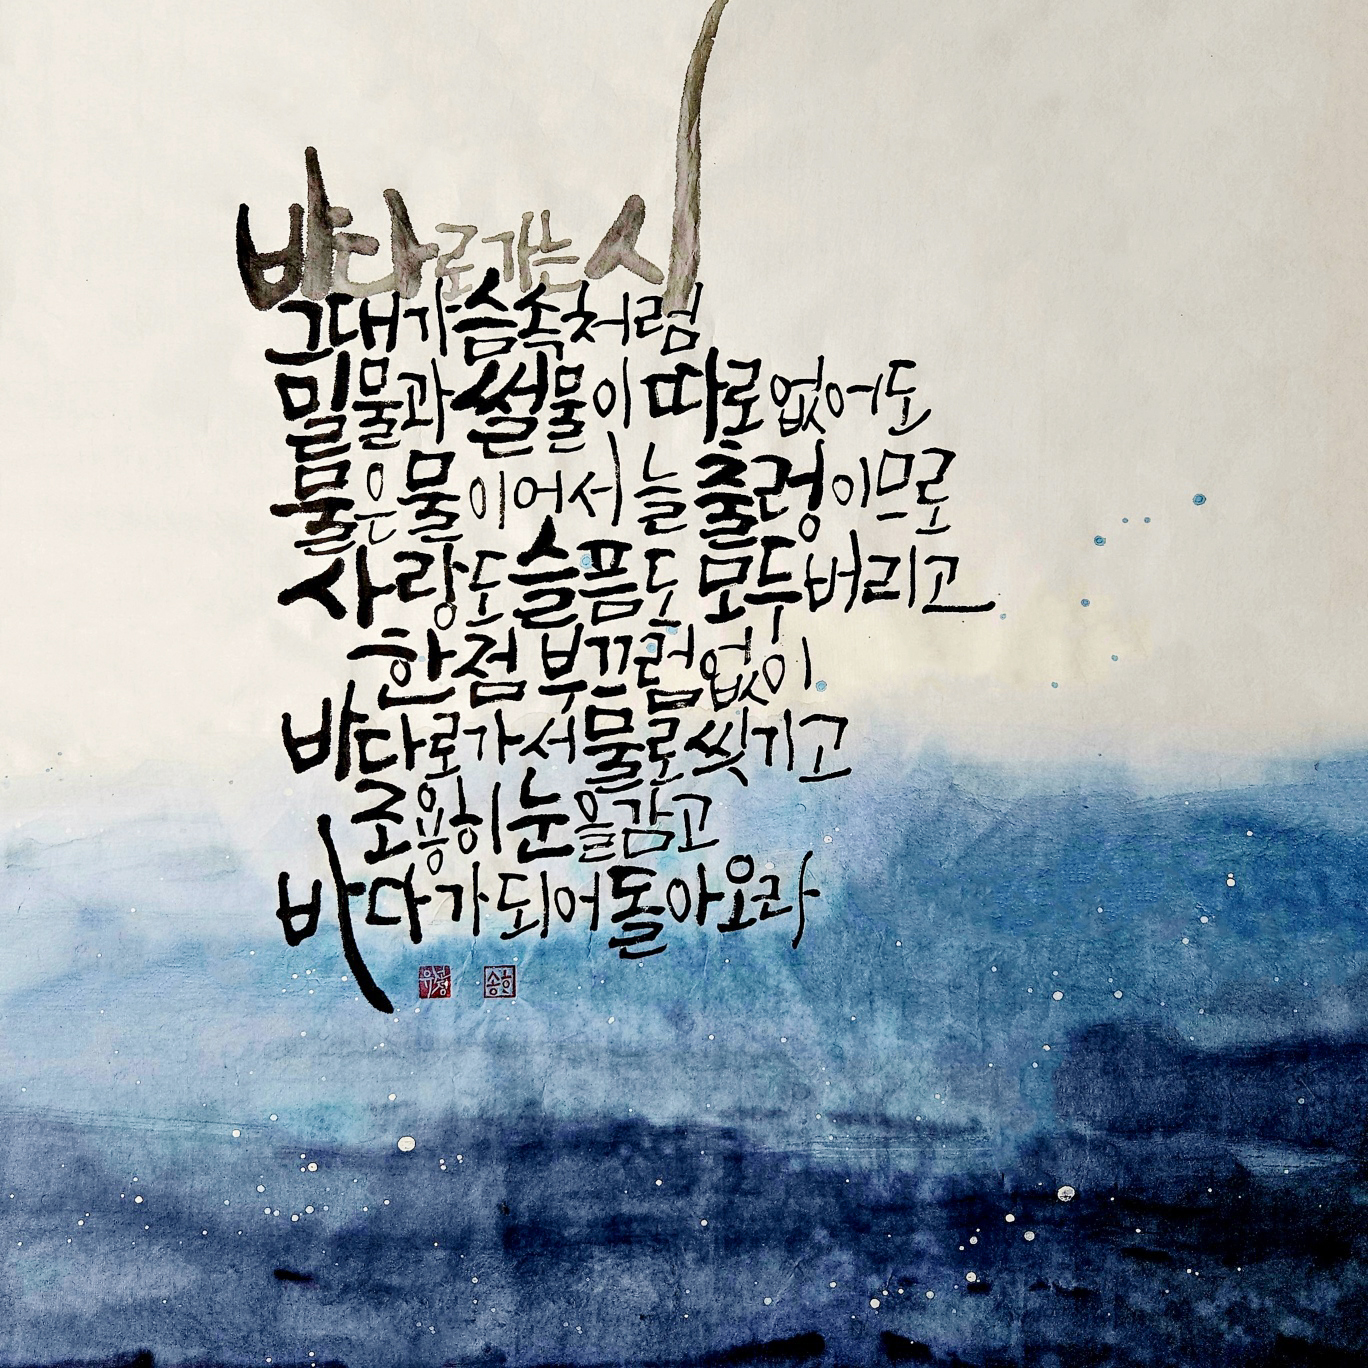 바다로 가는 시
그대 가슴속처럼
밀물과 썰물이 따로 없어도
물은 물이어서 늘 출렁이므로
사랑도 슬픔도 모두 버리고
한 점 부끄럼 없이
바다로 가서 물로 씻기고
조용히 눈을 감고
바다가 되어 돌아오라
송희